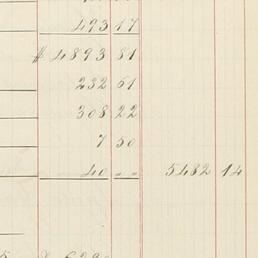 493 17
# 4893 81
232 61
308 22
7 50
40 -- 5482 14